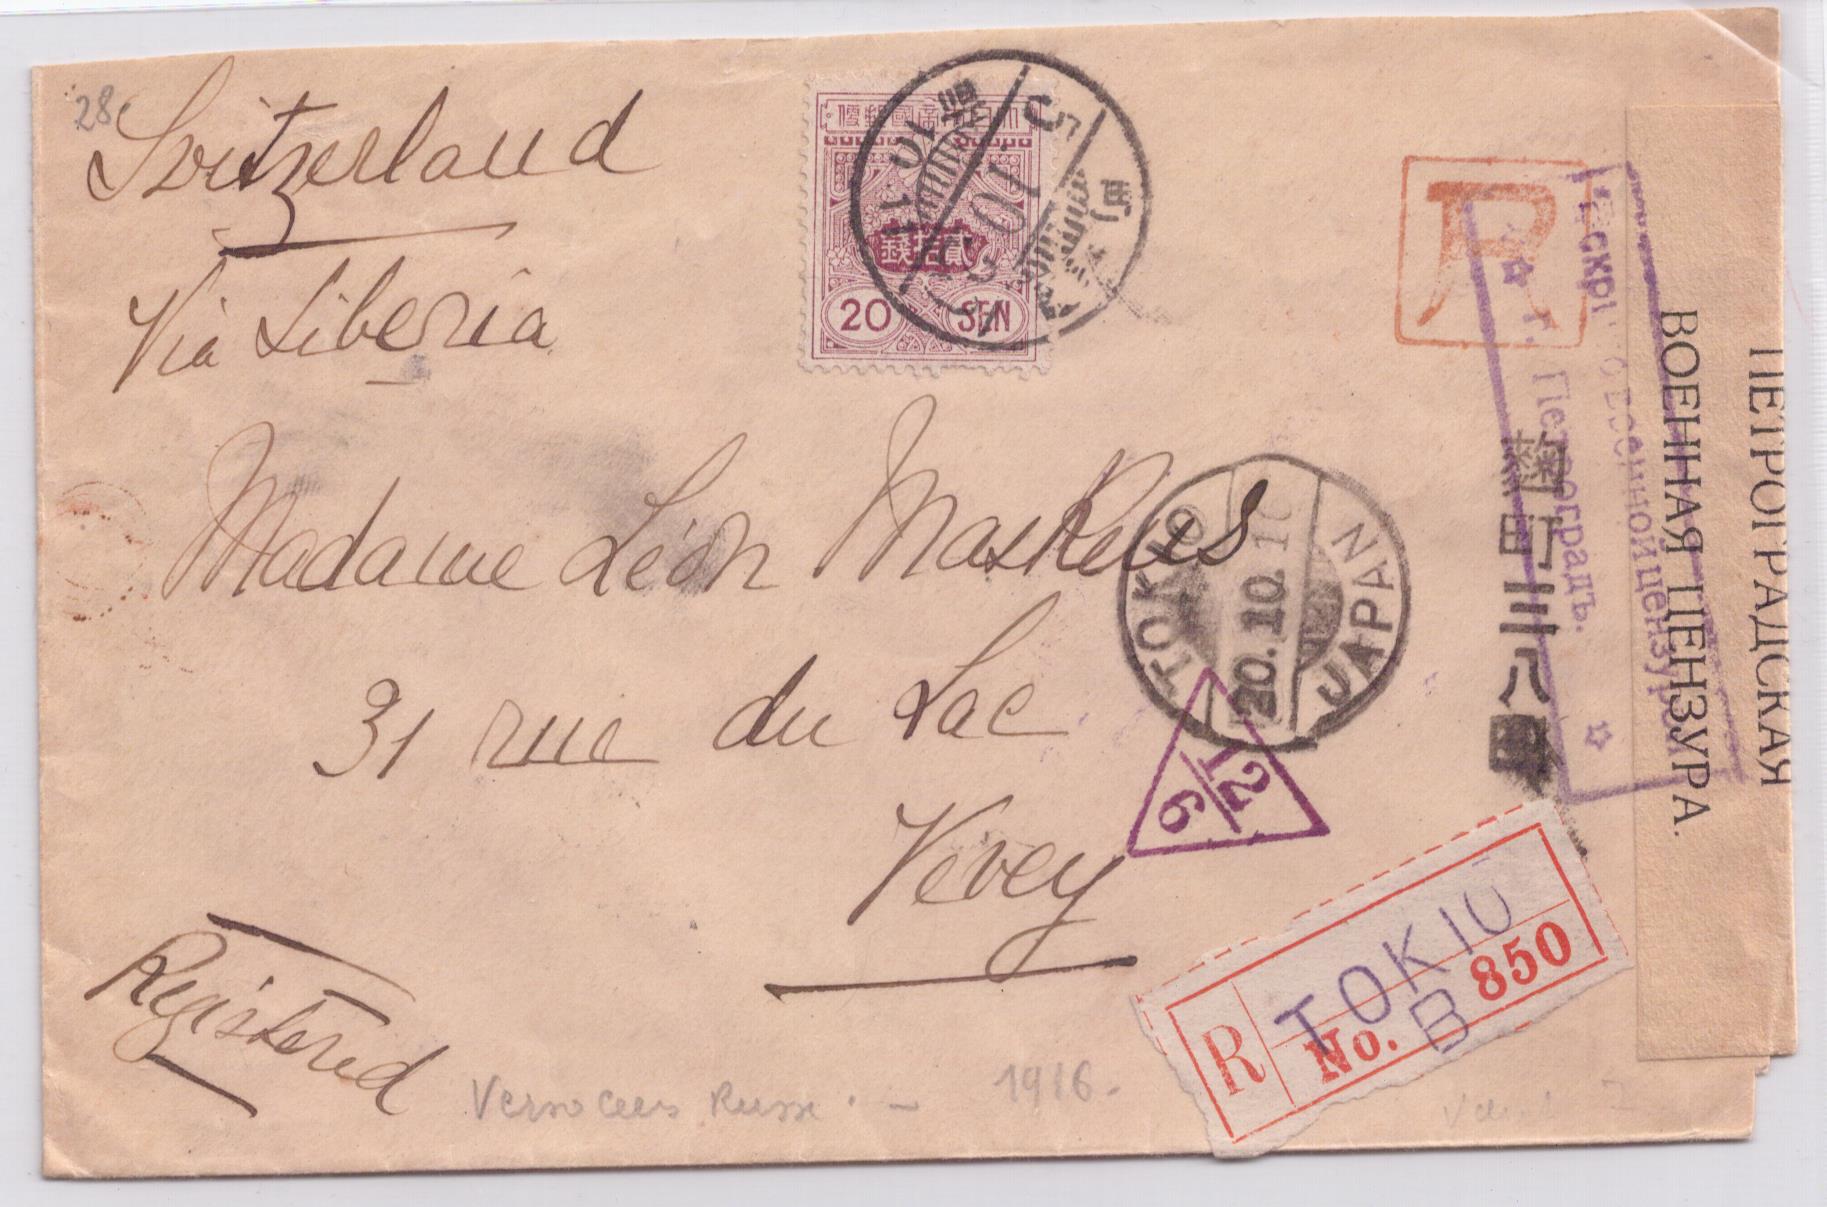 28
Switzerland
Via Siberia
大日本帝國郵便
貳拾錢
20 SEN
R
Madame Léon
31 rue du Lac
Vevey
Registered
TOKIO
20.10.16
JAPAN
12
6
麹町
三八
Вскрыто военной цензурой
г. Петроградъ.
ПЕТРОГРАДСКАЯ
ВОЕННАЯ ЦЕНЗУРА.
R TOKIO
No. B 850
1916.